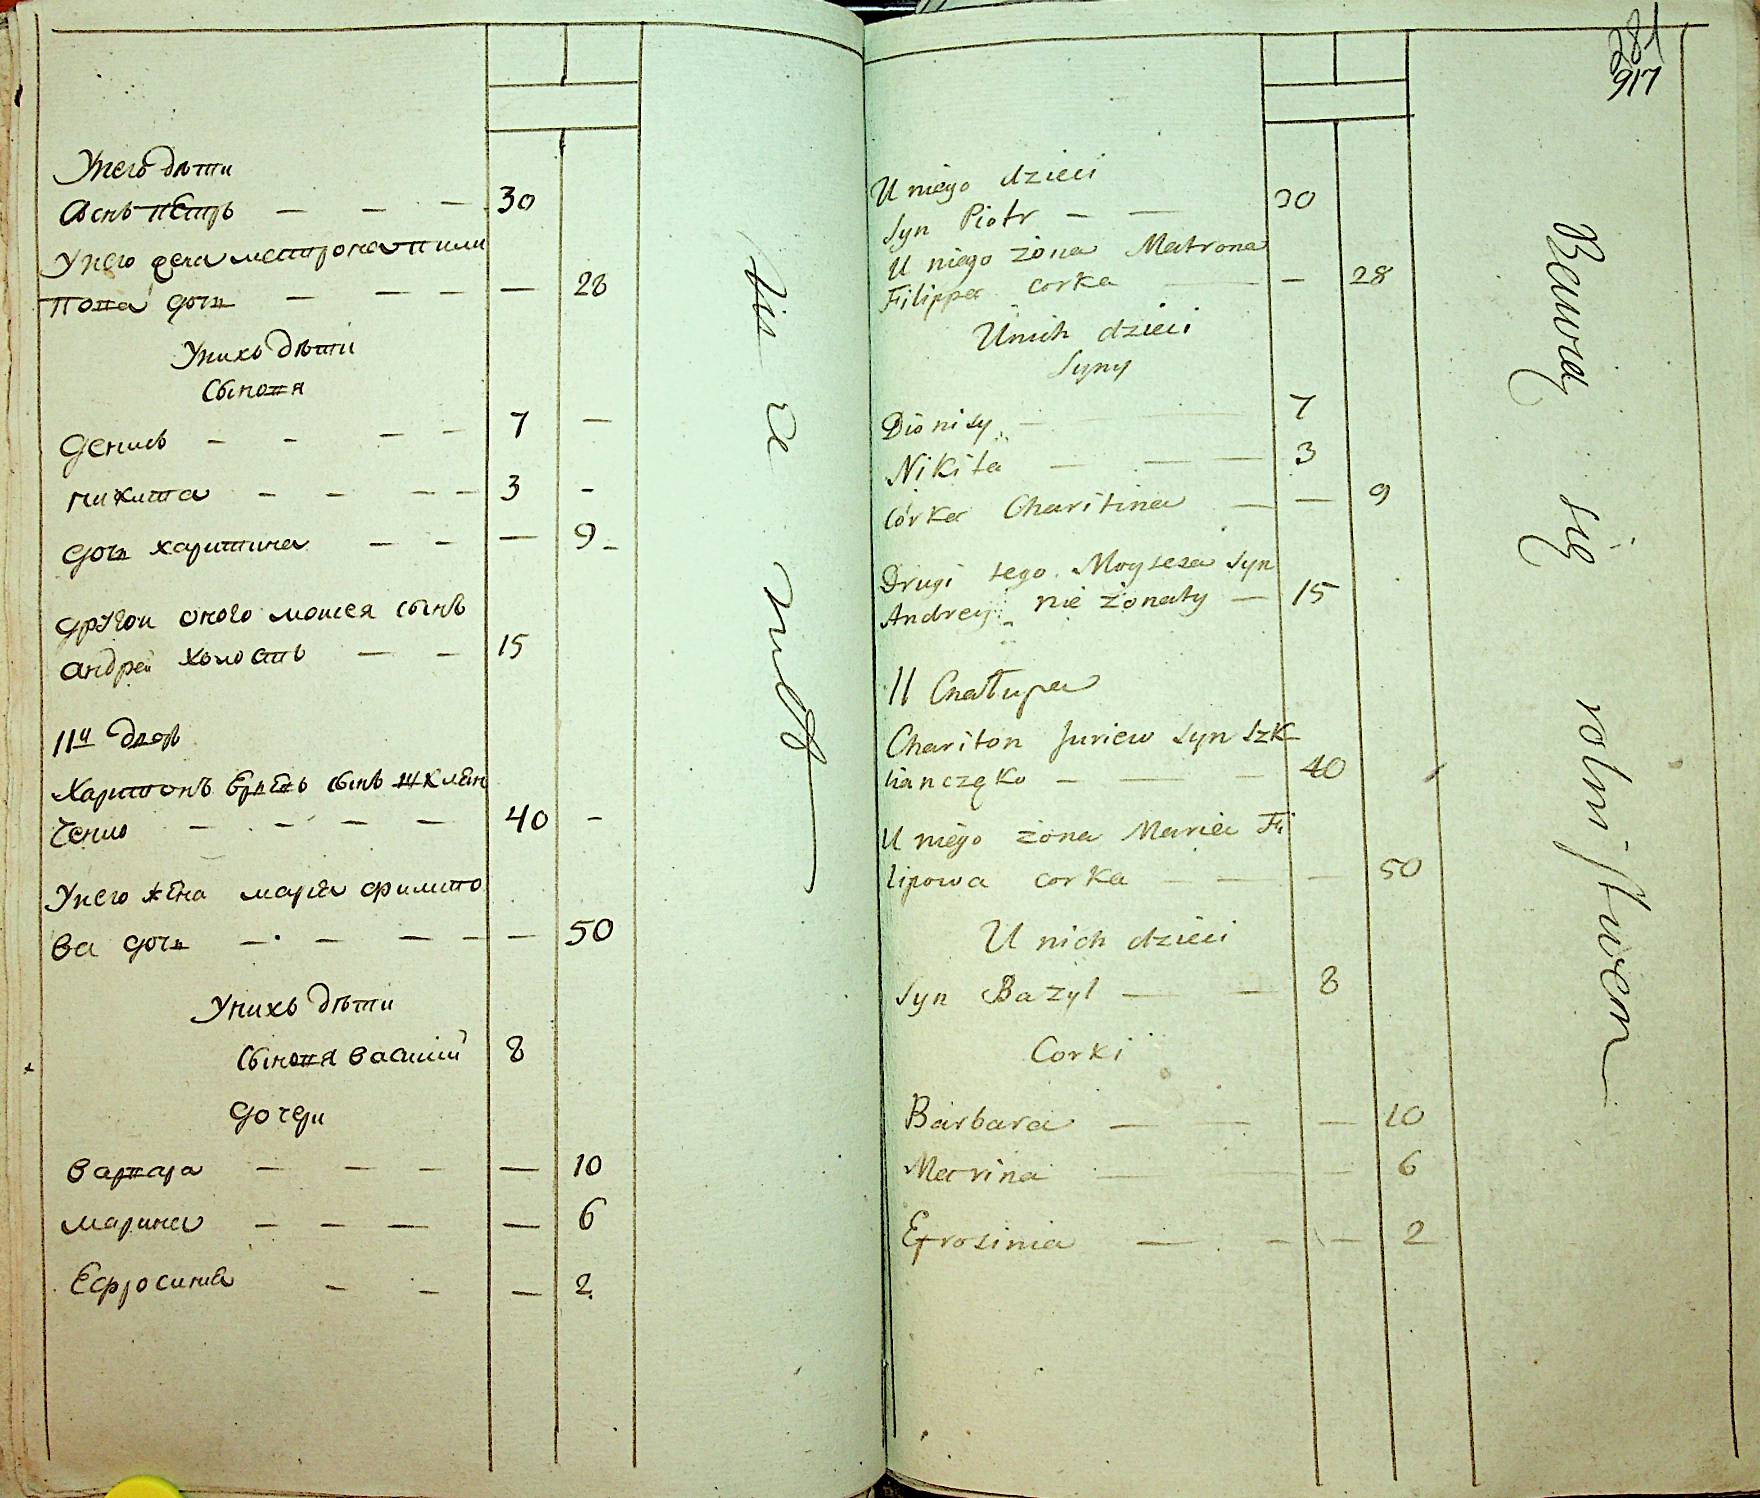 Унего дѣти
Сынъ пetръ — — — 30
Унего жена матрона пили
пова дочь — — — — 28
Унихъ дѣти
Сыновя
Денисъ — — — — 7 —
никита — — — — 3 -
дочь харитина — — — 9 -
другои оного моисея сынъ
андреи холостъ — — 15
11й дворъ
Харитонъ Юрьевъ сынъ шклян
ченко — — — — 40 -
Унего жена марія филипо
ва дочь — — — — — 50
Унихъ дѣти
Сыновя василий 8
дочери
варвара — — — — 10
марина — — — — 6
Ефросинія — — — 2
281
917
U niego dzieci
Syn Piotr — — 30
U niego żona Matrona
Filippa corka — — 28
U nich dzieci
Syny
Dionisy — 7
Nikita — — — 3
Córka Charitina — — 9
Drugi tego Moyseia Syn
Andrey nie żonaty — 15
11 Chałupa
Chariton Juriew Syn Szk
lianczęko — — — 40
U niego żona Maria Fi
lipowa corka — — — 50
U nich dzieci
Syn Bazyl — — 8
Corki
Barbara — — — 10
Marina — — 6
Efrosinia — — — 2
Bawią się rolnistwem